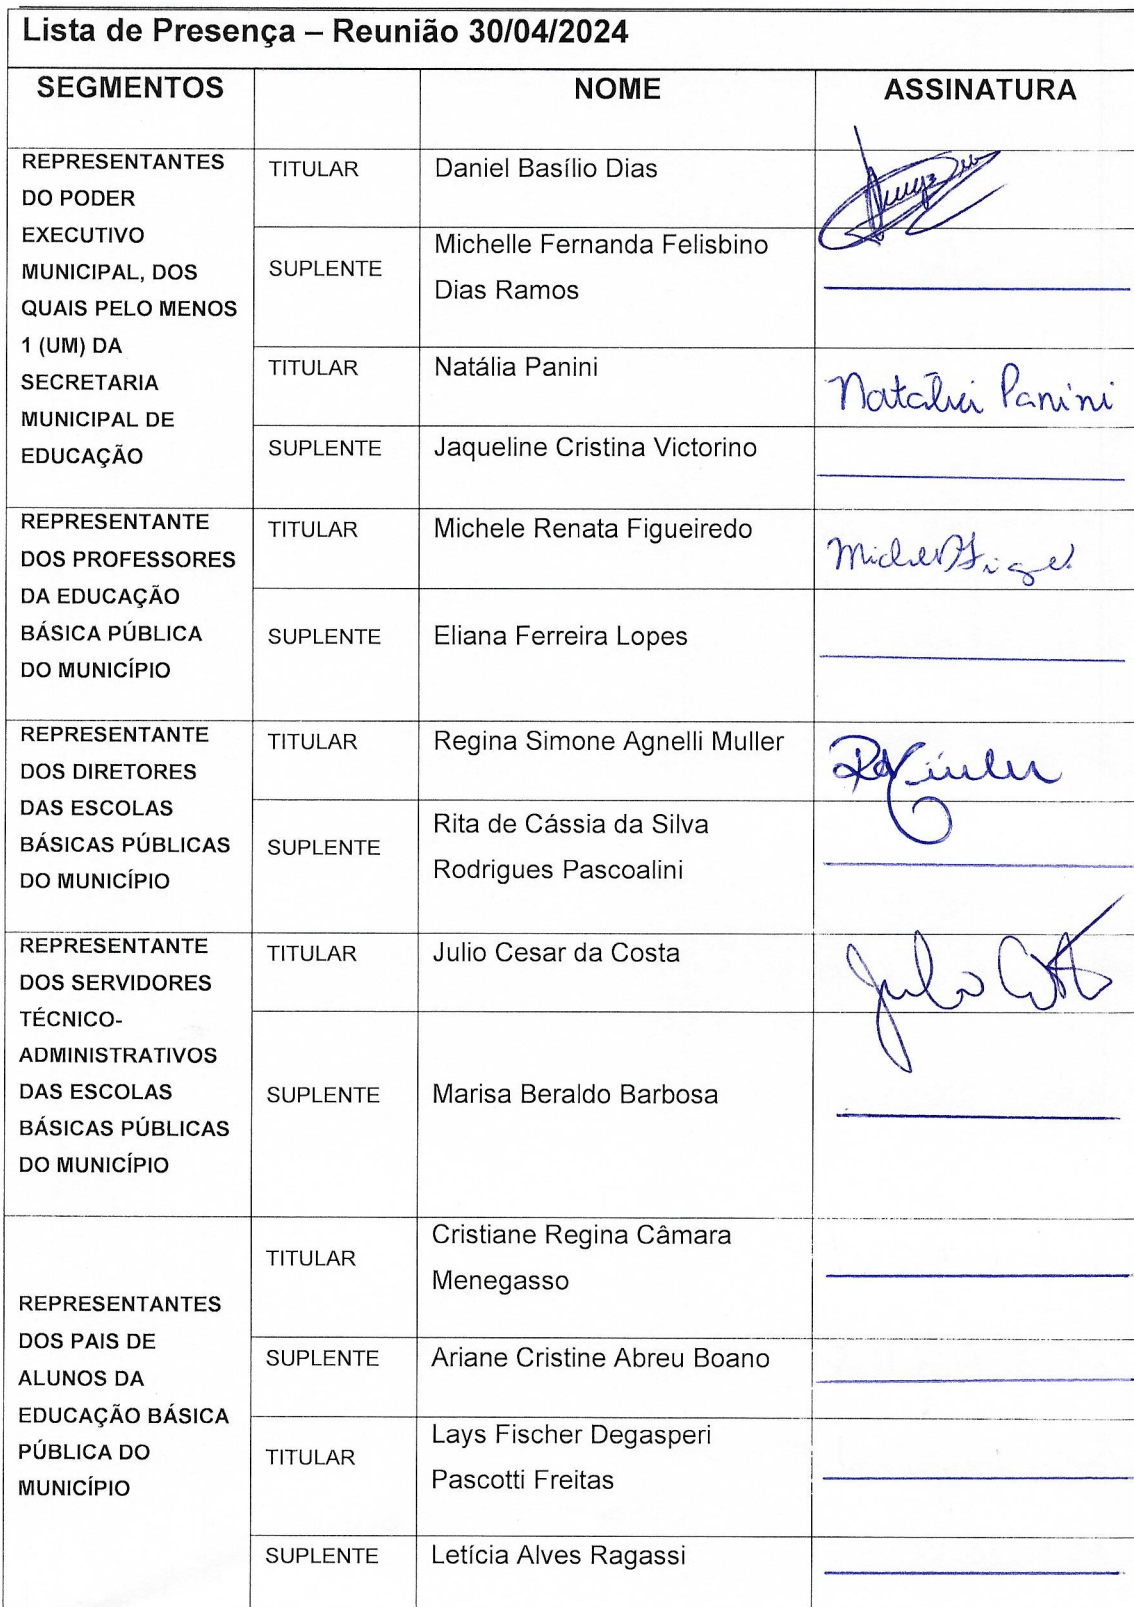 Lista de Presença – Reunião 30/04/2024
SEGMENTOS NOME ASSINATURA
REPRESENTANTES
DO PODER
EXECUTIVO
MUNICIPAL, DOS
QUAIS PELO MENOS
1 (UM) DA
SECRETARIA
MUNICIPAL DE
EDUCAÇÃO
TITULAR Daniel Basílio Dias
SUPLENTE Michelle Fernanda Felisbino
Dias Ramos
TITULAR Natália Panini Natália Panini
SUPLENTE Jaqueline Cristina Victorino
REPRESENTANTE
DOS PROFESSORES
DA EDUCAÇÃO
BÁSICA PÚBLICA
DO MUNICÍPIO
TITULAR Michele Renata Figueiredo
SUPLENTE Eliana Ferreira Lopes
REPRESENTANTE
DOS DIRETORES
DAS ESCOLAS
BÁSICAS PÚBLICAS
DO MUNICÍPIO
TITULAR Regina Simone Agnelli Muller
SUPLENTE Rita de Cássia da Silva
Rodrigues Pascoalini
REPRESENTANTE
DOS SERVIDORES
TÉCNICO-
ADMINISTRATIVOS
DAS ESCOLAS
BÁSICAS PÚBLICAS
DO MUNICÍPIO
TITULAR Julio Cesar da Costa
SUPLENTE Marisa Beraldo Barbosa
REPRESENTANTES
DOS PAIS DE
ALUNOS DA
EDUCAÇÃO BÁSICA
PÚBLICA DO
MUNICÍPIO
TITULAR Cristiane Regina Câmara
Menegasso
SUPLENTE Ariane Cristine Abreu Boano
TITULAR Lays Fischer Degasperi
Pascotti Freitas
SUPLENTE Letícia Alves Ragassi